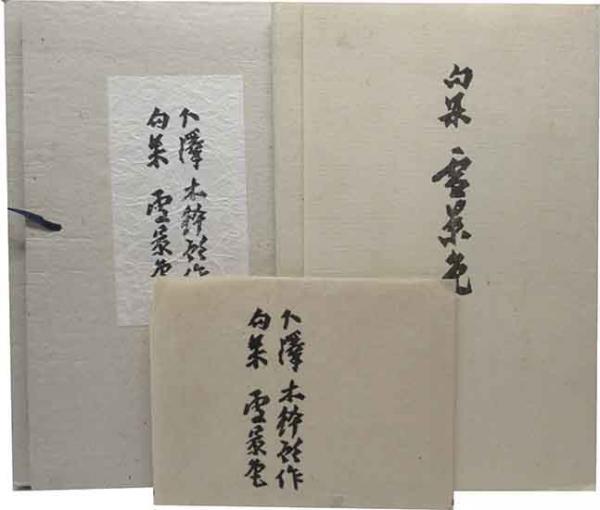 下澤 木鉢郎作
句集 雪景色
句集 雪景色
下澤 木鉢郎作
句集 雪景色